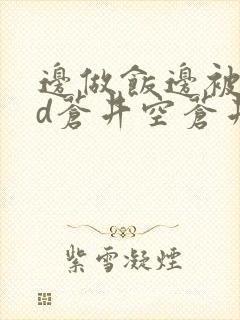 邊做飯邊被
d蒼井空蒼井
紫雪凝煙